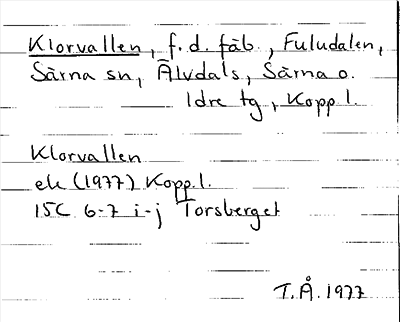 Klorvallen, f.d. fäb., Fuludalen,
Särna sn, Älvdals, Särna o.
Idre tg, Kopp.l.
Klorvallen
ek (1977) Kopp.l.
15C 6-7 i-j Torsberget
T.Å. 1977